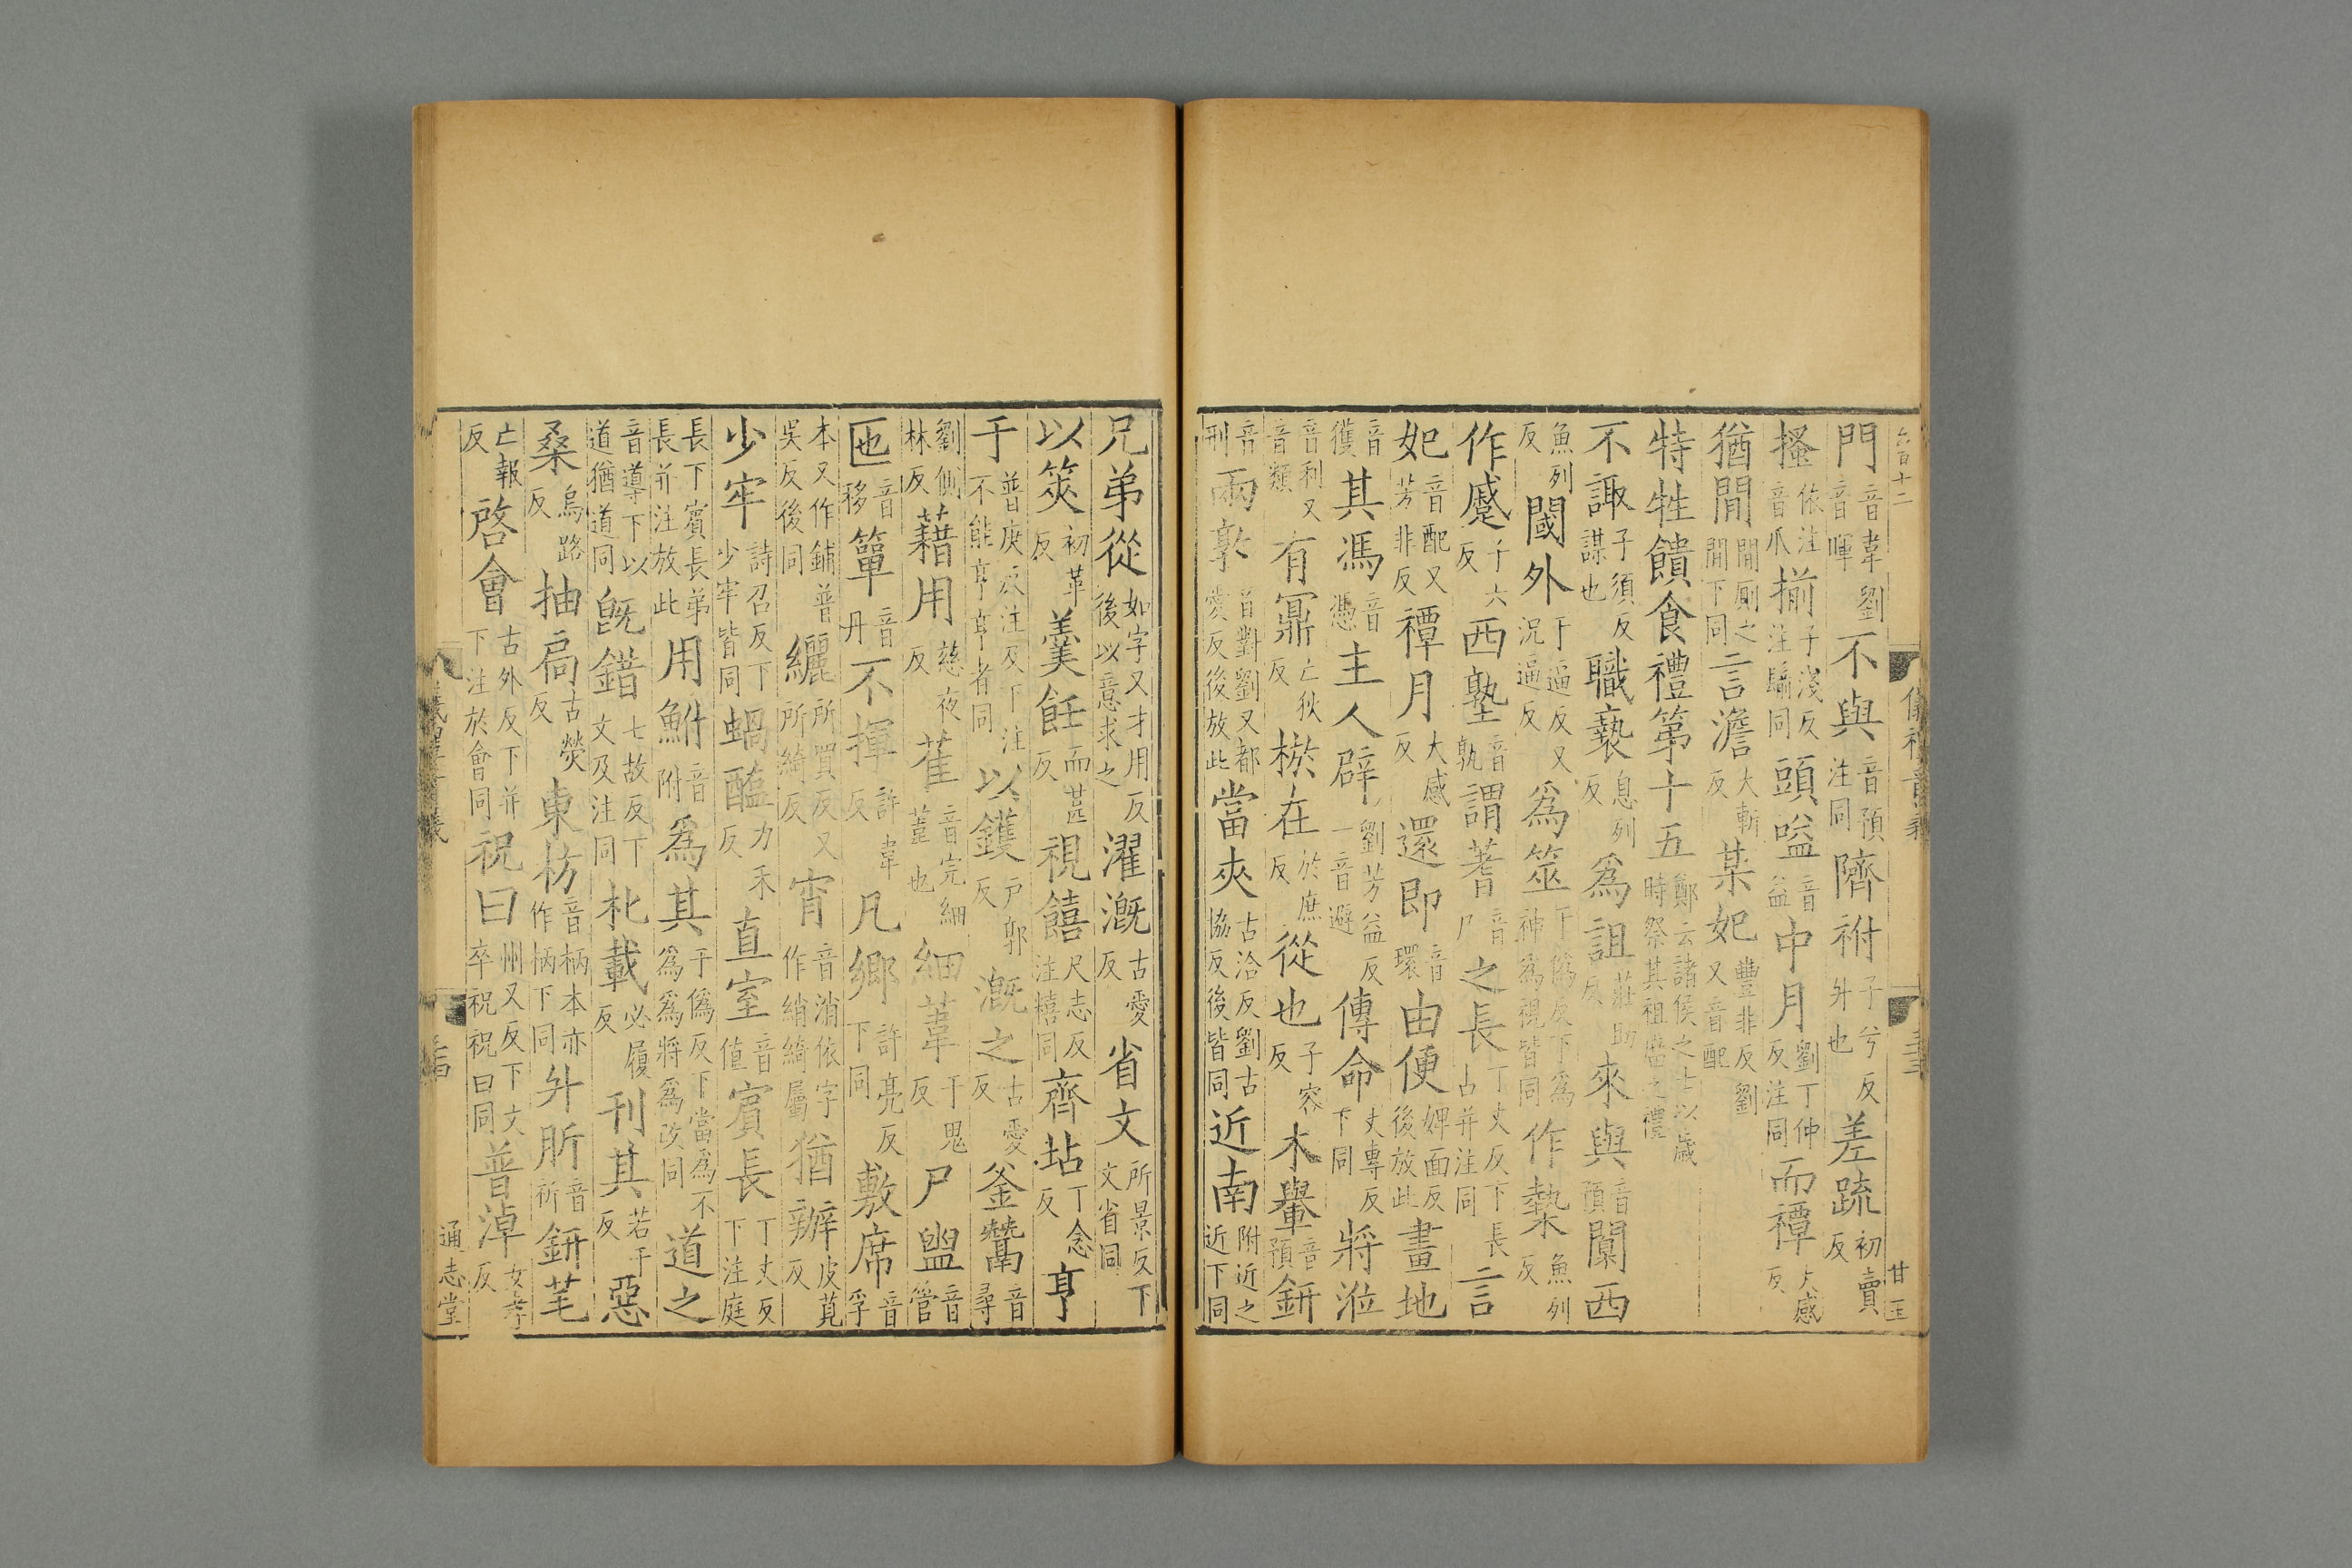 六百十二
儀禮音義
甘玉
門音韋劉音暉不與音預注同隮祔子兮反升也差䟽初賣反
搔依注音爪揃子淺反注鬋同頭嗌音益中月劉丁仲反注同而禫大感反
猶閒閒厠之閒下同言澹大斬反某妃豐非反劉又音配
特牲饋食禮第十五鄭云諸侯之士以歲時祭其祖禰之禮
不諏子須反謀也職褻息列反爲詛莊助反來與音預闑西
魚列反閾外于逼反又況逼反爲筮于僞反下爲神爲視皆同作槷魚列反
作蹙千六反西塾音孰謂蓍音尸之長丁丈反下長占并注同言
妃音配又芳非反禫月大感反還即音環由便婢面反後放此畫地
音獲其馮音憑主人辟劉芳益反一音避傳命丈專反下同將涖
音利又音類有鼏亡狄反棜在於庶反從也子容反木轝音預鉶
音刑兩敦音對劉又都愛反後放此當夾古洽反劉古協反後皆同近南附近之近下同
兄弟從如字又才用反後以意求之濯漑古愛反省文所景反下文省同
以筴初革反羹飪而甚反視饎尺志反注糦同齊坫丁念反亨
于普庚反注及下注不能亨亨者同以鑊戶郭反漑之古愛反釜鬵音尋
劉側林反藉用慈夜反萑音完細葦也細葦于鬼反尸盥音管
匜音移簞音丹不揮許韋反凡鄉許亮反下同敷席音孚
本又作鋪普吳反後同纚所買反又所綺反宵音消依字作綃綺屬猶辨皮莧反
少牢詩召反下少牢皆同蝸醢力禾反直室音值賓長丁丈反下注庭
長下賓長長弟長并注放此用鮒音附爲其于僞反下當爲不爲爲將爲改同道之
音導下以道猶道同旣錯七故反下文及注同朼載必履反刊其若干反惡
桑烏路反抽扃古熒反東枋音柄本亦作柄下同升肵音祈鉶芼
亡報反啓會古外反下并下注於會同祝曰州又反下文卒祝祝曰同普淖女孝反
通志堂